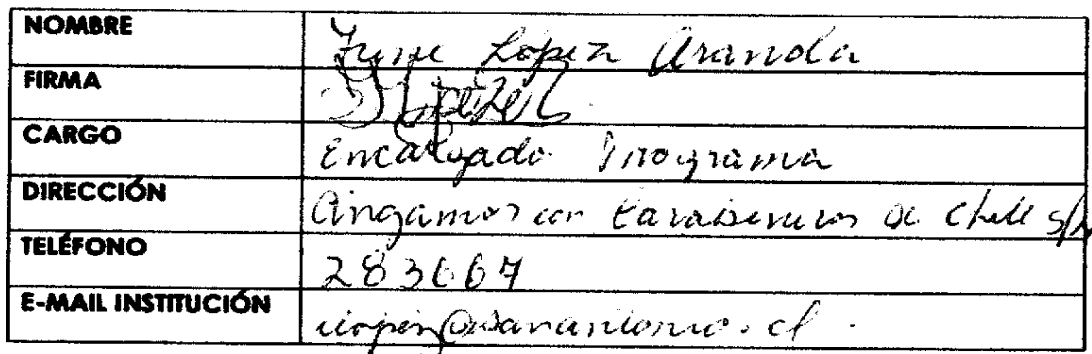 NOMBRE López Aranda
FIRMA
CARGO Encargado Programa
DIRECCIÓN Angamos con Carabineros de Chile s/n
TELÉFONO 283667
E-MAIL INSTITUCIÓN